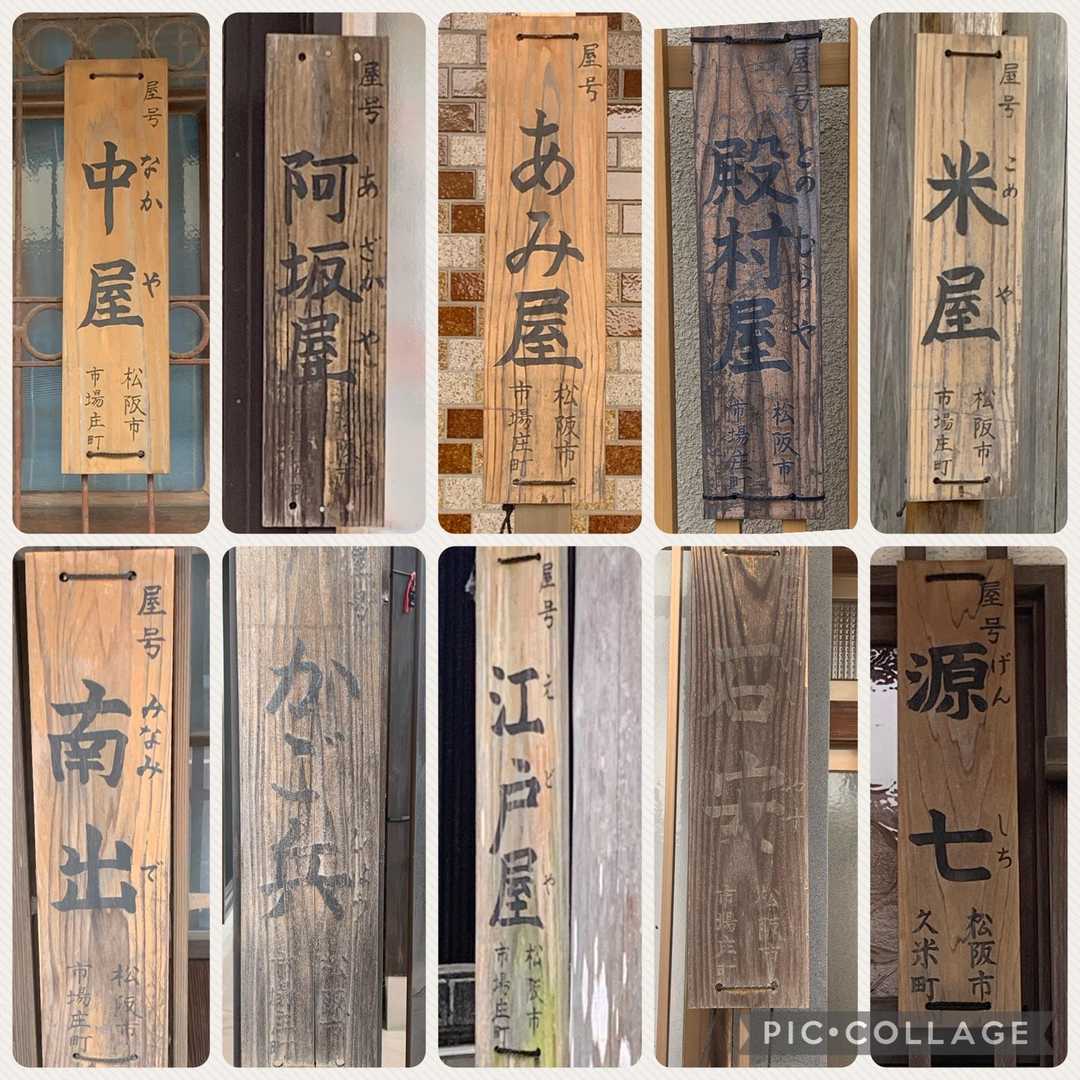 屋号
中屋
なかや
松阪市
市場庄町
屋号
阿坂屋
あざかや
屋号
あみ屋
松阪市
市場庄町
屋号
殿村屋
とのむらや
松阪市
市場庄町
屋号
米屋
こめや
松阪市
市場庄町
屋号
南出
みなみで
松阪市
市場庄町
かご兵
屋号
江戸屋
えどや
松阪市
市場庄町
松阪市
市場庄町
屋号
源七
げんしち
松阪市
久米町
PIC•COLLAGE